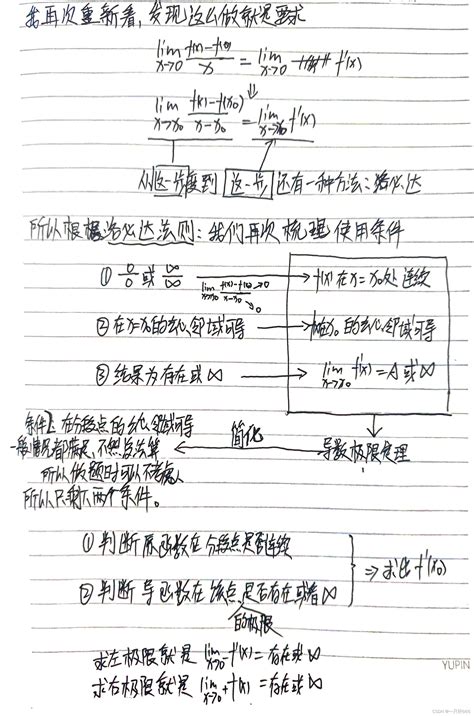 我再次重新看,发现这么做就是要求
lim x→0 f(x)-f(0)/x = lim x→0 f'(x)
⇓
lim x→x₀ f(x)-f(x₀)/x-x₀ = lim x→x₀ f'(x)
从这一步度到 这一步,还有一种方法:洛必达
所以根据洛必达法则:我们再次梳理使用条件
① 0/0 或 ∞/∞ lim x→x₀ f(x)-f(x₀)→0/x-x₀→0 → f(x)在x=x₀处连续
② 在x=x₀的去心邻域可导 → f(x)在x₀的去心邻域可导
③ 结果为存在或∞ → lim x→x₀ f'(x)=A或∞
条件2 在分段点的去心邻域可导
一般情况都满足,不然怎么算
简化
导数极限定理
所以做题时可以不考虑
所以只剩下两个条件。
① 判断原函数在分段点是否连续
② 判断导函数在该点是否存在或者∞
⇒ 求出f'(x₀)
的极限
求左极限就是 lim x→x₀⁻ f'(x)=存在或∞
求右极限就是 lim x→x₀⁺ f'(x)=存在或∞
YUPIN